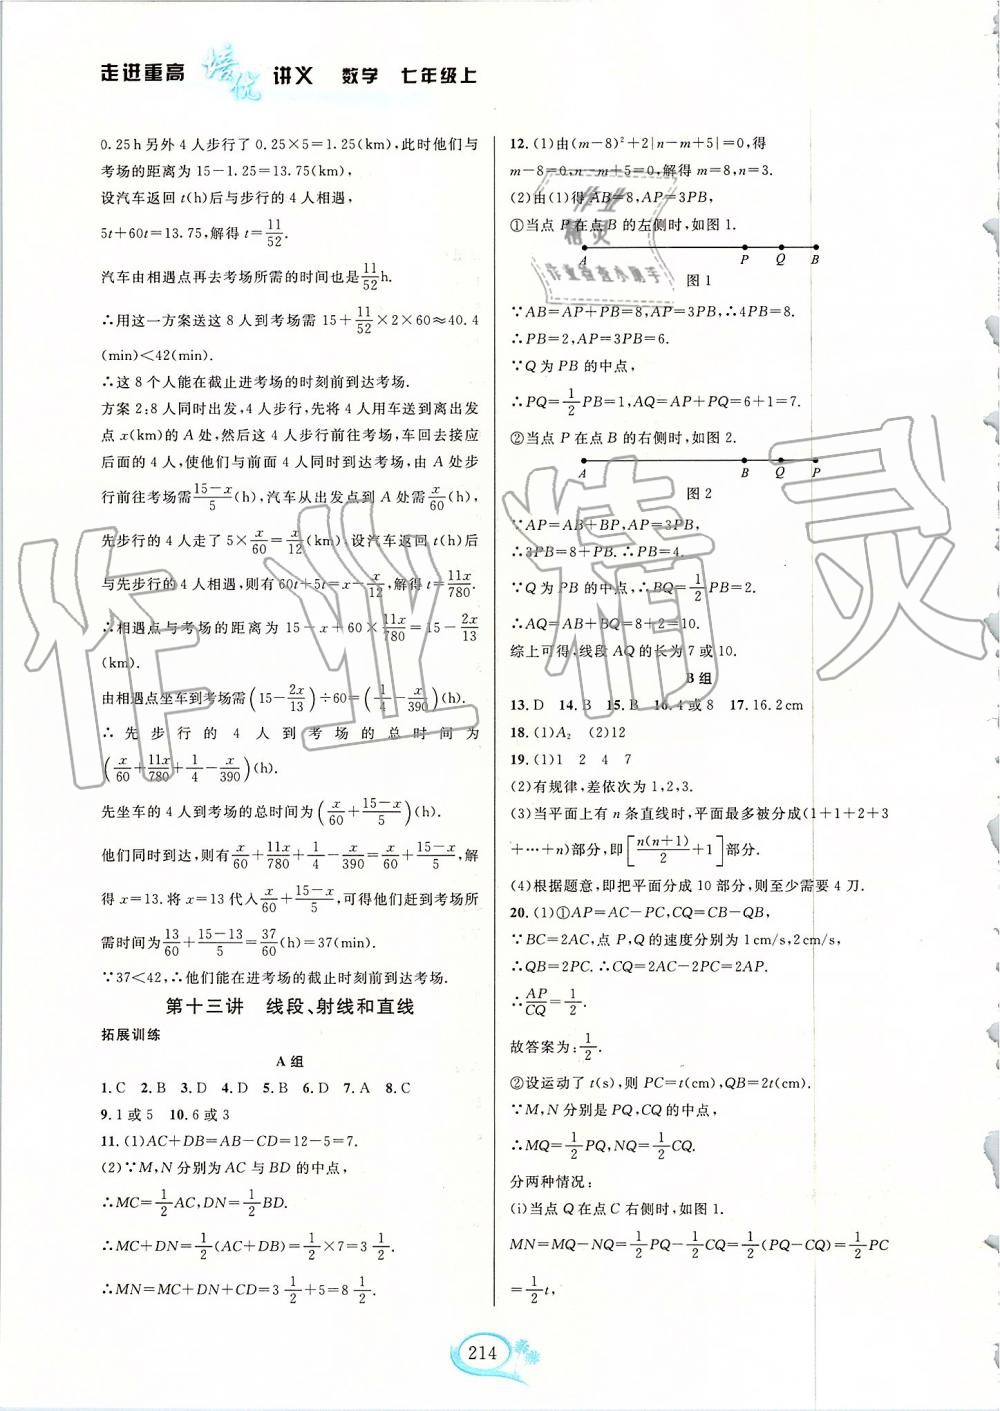 走进重高 培优 讲义 数学 七年级上
0.25h另外4人步行了0.25×5=1.25(km),此时他们与
考场的距离为15-1.25=13.75(km),
设汽车返回t(h)后与步行的4人相遇,
5t+60t=13.75,解得t=11/52.
汽车由相遇点再去考场所需的时间也是11/52h.
∴用这一方案送这8人到考场需15+11/52×2×60≈40.4
(min)<42(min).
∴这8个人能在截止进考场的时刻前到达考场.
方案2:8人同时出发,4人步行,先将4人用车送到离出发
点x(km)的A处,然后这4人步行前往考场,车回去接应
后面的4人,使他们与前面4人同时到达考场,由A处步
行前往考场需(15-x)/5(h),汽车从出发点到A处需x/60(h),
先步行的4人走了5×x/60=x/12(km).设汽车返回t(h)后
与先步行的4人相遇,则有60t+5t=x-x/12,解得t=11x/780.
∴相遇点与考场的距离为15-x+60×11x/780=15-2x/13
(km).
由相遇点坐车到考场需(15-2x/13)÷60=(1/4-x/390)(h).
∴先步行的4人到考场的总时间为
(x/60+11x/780+1/4-x/390)(h).
先坐车的4人到考场的总时间为(x/60+(15-x)/5)(h).
他们同时到达,则有x/60+11x/780+1/4-x/390=x/60+(15-x)/5,解
得x=13.将x=13代入x/60+(15-x)/5,可得他们赶到考场所
需时间为13/60+(15-13)/5=37/60(h)=37(min).
∵37<42,∴他们能在进考场的截止时刻前到达考场.
第十三讲 线段、射线和直线
拓展训练
A组
1.C 2.B 3.D 4.D 5.B 6.D 7.A 8.C
9.1或5 10.6或3
11.(1)AC+DB=AB-CD=12-5=7.
(2)∵M,N分别为AC与BD的中点,
∴MC=1/2AC,DN=1/2BD.
∴MC+DN=1/2(AC+DB)=1/2×7=3 1/2.
∴MN=MC+DN+CD=3 1/2+5=8 1/2.
12.(1)由(m-8)²+2|n-m+5|=0,得
m-8=0,n-m+5=0,解得m=8,n=3.
(2)由(1)得AB=8,AP=3PB,
①当点P在点B的左侧时,如图1.
A P Q B
图1
∵AB=AP+PB=8,AP=3PB,∴4PB=8.
∴PB=2,AP=3PB=6.
∵Q为PB的中点,
∴PQ=1/2PB=1,AQ=AP+PQ=6+1=7.
②当点P在点B的右侧时,如图2.
A B Q P
图2
∵AP=AB+BP,AP=3PB,
∴3PB=8+PB.∴PB=4.
∵Q为PB的中点,∴BQ=1/2PB=2.
∴AQ=AB+BQ=8+2=10.
综上可得,线段AQ的长为7或10.
B组
13.D 14.B 15.B 16.4或8 17.16.2cm
18.(1)A₂ (2)12
19.(1)1 2 4 7
(2)有规律,差依次为1,2,3.
(3)当平面上有n条直线时,平面最多被分成(1+1+2+3
+…+n)部分,即[n(n+1)/2+1]部分.
(4)根据题意,即把平面分成10部分,则至少需要4刀.
20.(1)①AP=AC-PC,CQ=CB-QB,
∵BC=2AC,点P,Q的速度分别为1cm/s,2cm/s,
∴QB=2PC.∴CQ=2AC-2PC=2AP.
∴AP/CQ=1/2.
故答案为:1/2.
②设运动了t(s),则PC=t(cm),QB=2t(cm).
∵M,N分别是PQ,CQ的中点,
∴MQ=1/2PQ,NQ=1/2CQ.
分两种情况:
(i)当点Q在点C右侧时,如图1.
MN=MQ-NQ=1/2PQ-1/2CQ=1/2(PQ-CQ)=1/2PC
=1/2t,
214
作业精灵
作业
精灵
作业检查小助手